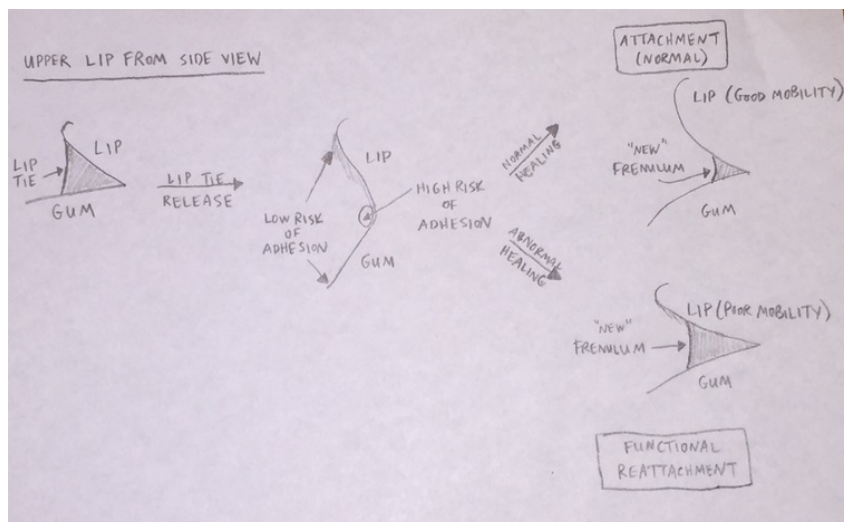 UPPER LIP FROM SIDE VIEW
LIP
TIE
LIP
GUM
LIP TIE
RELEASE
LIP
LOW RISK
OF
ADHESION
HIGH RISK
OF
ADHESION
GUM
NORMAL
HEALING
ABNORMAL
HEALING
ATTACHMENT
(NORMAL)
LIP (GOOD MOBILITY)
"NEW"
FRENULUM
GUM
LIP (POOR MOBILITY)
"NEW"
FRENULUM
GUM
FUNCTIONAL
REATTACHMENT